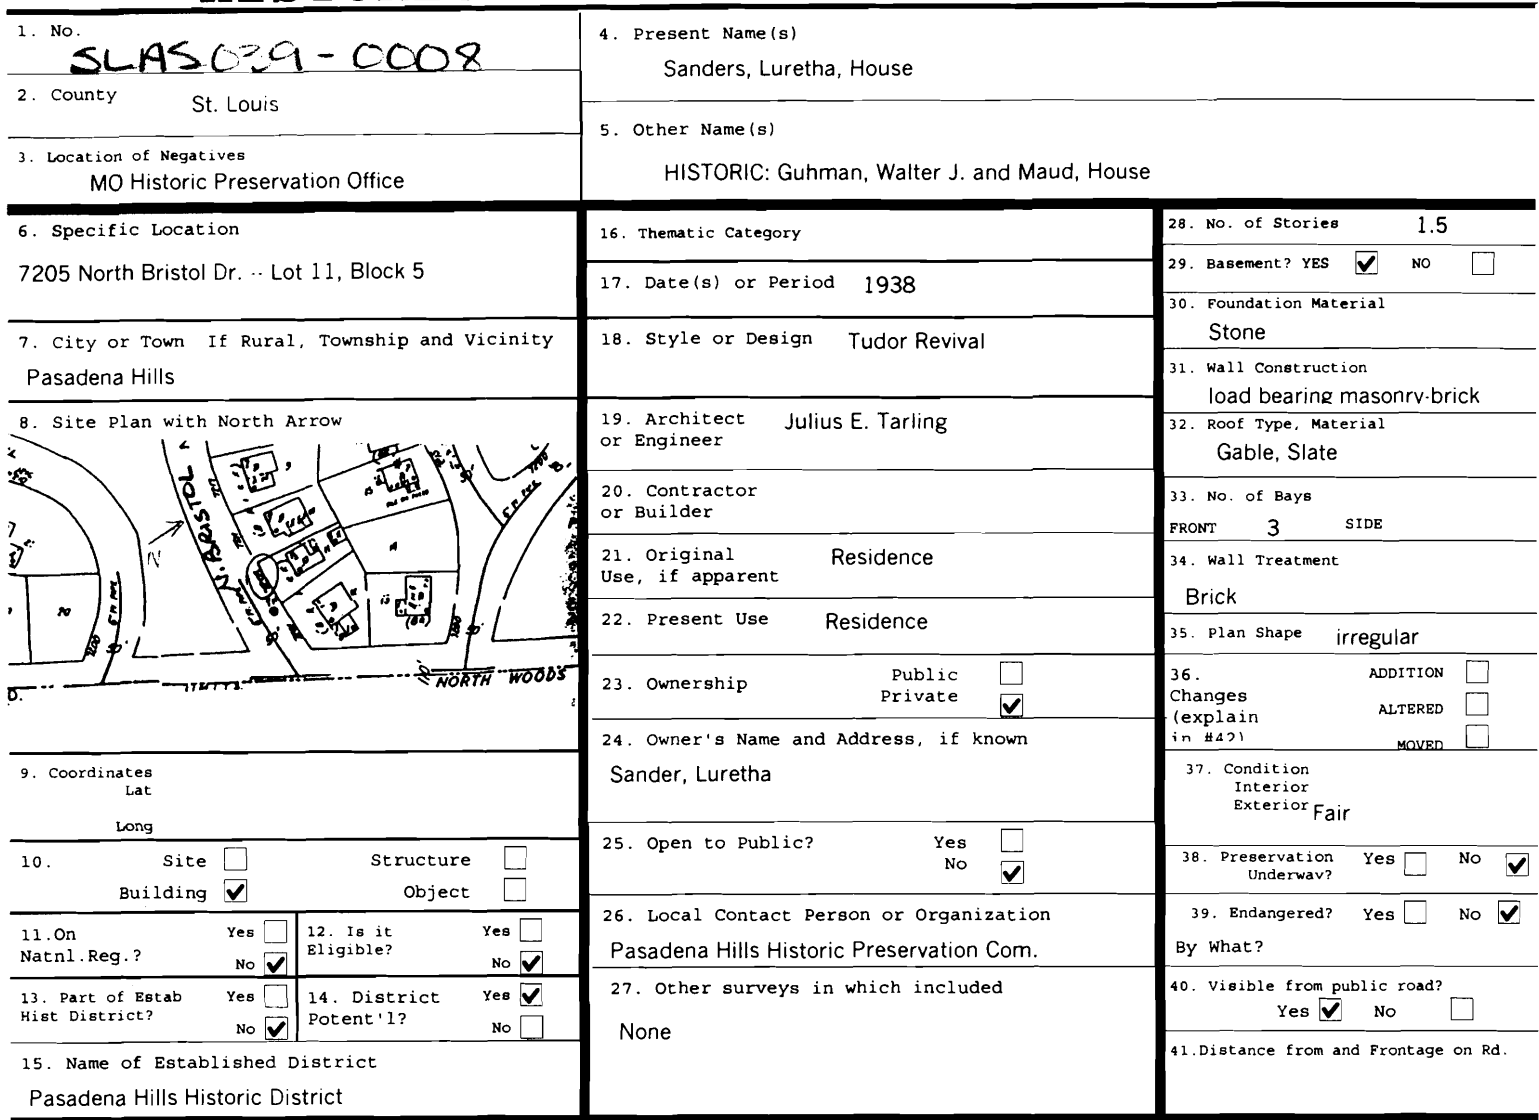 1. No.
SLAS039-0008
2. County St. Louis
3. Location of Negatives
MO Historic Preservation Office
4. Present Name(s)
Sanders, Luretha, House
5. Other Name(s)
HISTORIC: Guhman, Walter J. and Maud, House
6. Specific Location
7205 North Bristol Dr. -- Lot 11, Block 5
7. City or Town If Rural, Township and Vicinity
Pasadena Hills
8. Site Plan with North Arrow
N. BRISTOL
N
NORTH WOODS
9. Coordinates
Lat
Long
10. Site Structure
Building ✔ Object
11.On Yes
Natnl.Reg.? No ✔
12. Is it Yes
Eligible? No ✔
13. Part of Estab Yes
Hist District? No ✔
14. District Yes ✔
Potent'l? No
15. Name of Established District
Pasadena Hills Historic District
16. Thematic Category
17. Date(s) or Period 1938
18. Style or Design Tudor Revival
19. Architect Julius E. Tarling
or Engineer
20. Contractor
or Builder
21. Original Residence
Use, if apparent
22. Present Use Residence
23. Ownership Public
Private ✔
24. Owner's Name and Address, if known
Sander, Luretha
25. Open to Public? Yes
No ✔
26. Local Contact Person or Organization
Pasadena Hills Historic Preservation Com.
27. Other surveys in which included
None
28. No. of Stories 1.5
29. Basement? YES ✔ NO
30. Foundation Material
Stone
31. Wall Construction
load bearing masonry-brick
32. Roof Type, Material
Gable, Slate
33. No. of Bays
FRONT 3 SIDE
34. Wall Treatment
Brick
35. Plan Shape irregular
36. ADDITION
Changes
(explain ALTERED
in #42) MOVED
37. Condition
Interior
Exterior Fair
38. Preservation Yes No ✔
Underway?
39. Endangered? Yes No ✔
By What?
40. Visible from public road?
Yes ✔ No
41.Distance from and Frontage on Rd.